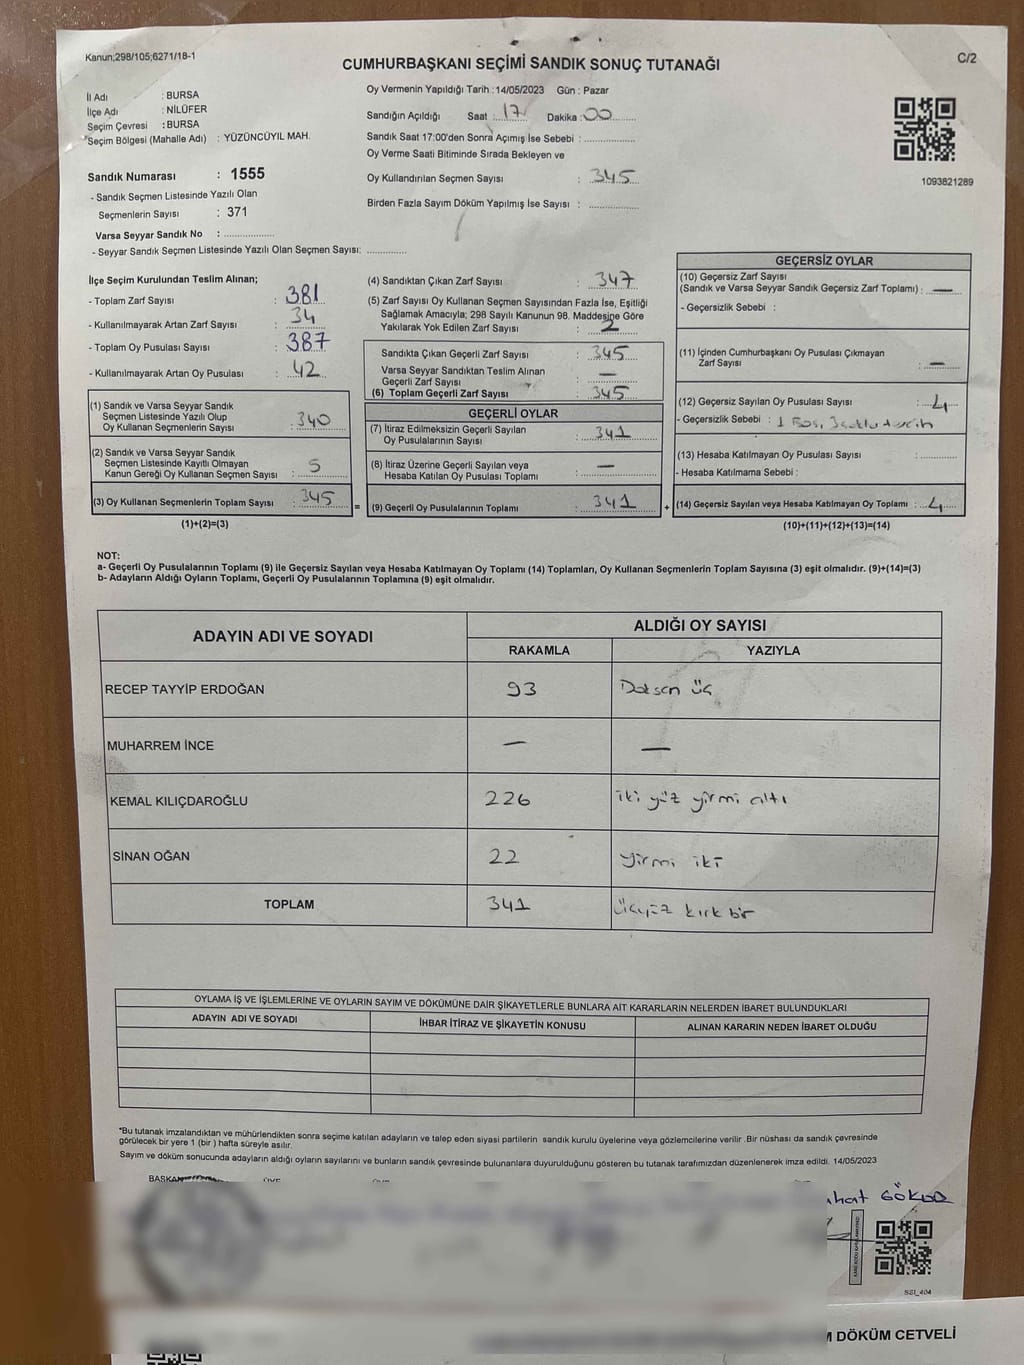 Kanun;298/105;6271/18-1
C/2
CUMHURBAŞKANI SEÇİMİ SANDIK SONUÇ TUTANAĞI
İl Adı : BURSA
İlçe Adı : NİLÜFER
Seçim Çevresi : BURSA
Seçim Bölgesi (Mahalle Adı) : YÜZÜNCÜYIL MAH.
Sandık Numarası : 1555
- Sandık Seçmen Listesinde Yazılı Olan
Seçmenlerin Sayısı : 371
Varsa Seyyar Sandık No : ..................
- Seyyar Sandık Seçmen Listesinde Yazılı Olan Seçmen Sayısı: ..............
Oy Vermenin Yapıldığı Tarih :14/05/2023 Gün : Pazar
Sandığın Açıldığı Saat : 17 Dakika : 00
Sandık Saat 17:00'den Sonra Açımış İse Sebebi : ..................
Oy Verme Saati Bitiminde Sırada Bekleyen ve
Oy Kullandırılan Seçmen Sayısı : 345
Birden Fazla Sayım Döküm Yapılmış İse Sayısı : ..................
1093821289
İlçe Seçim Kurulundan Teslim Alınan;
- Toplam Zarf Sayısı : 381
- Kullanılmayarak Artan Zarf Sayısı : 34
- Toplam Oy Pusulası Sayısı : 387
- Kullanılmayarak Artan Oy Pusulası : 42
(1) Sandık ve Varsa Seyyar Sandık
Seçmen Listesinde Yazılı Olup
Oy Kullanan Seçmenlerin Sayısı : 340
(2) Sandık ve Varsa Seyyar Sandık
Seçmen Listesinde Kayıtlı Olmayan
Kanun Gereği Oy Kullanan Seçmen Sayısı : 5
(3) Oy Kullanan Seçmenlerin Toplam Sayısı : 345
(1)+(2)=(3)
(4) Sandıktan Çıkan Zarf Sayısı : 347
(5) Zarf Sayısı Oy Kullanan Seçmen Sayısından Fazla İse, Eşitliği
Sağlamak Amacıyla; 298 Sayılı Kanunun 98. Maddesine Göre
Yakılarak Yok Edilen Zarf Sayısı : 2
Sandıkta Çıkan Geçerli Zarf Sayısı : 345
Varsa Seyyar Sandıktan Teslim Alınan
Geçerli Zarf Sayısı : —
(6) Toplam Geçerli Zarf Sayısı : 345
GEÇERLİ OYLAR
(7) İtiraz Edilmeksizin Geçerli Sayılan
Oy Pusulalarının Sayısı : 341
(8) İtiraz Üzerine Geçerli Sayılan veya
Hesaba Katılan Oy Pusulası Toplamı : —
= (9) Geçerli Oy Pusulalarının Toplamı : 341 +
GEÇERSİZ OYLAR
(10) Geçersiz Zarf Sayısı
(Sandık ve Varsa Seyyar Sandık Geçersiz Zarf Toplamı) : —
- Geçersizlik Sebebi :
(11) İçinden Cumhurbaşkanı Oy Pusulası Çıkmayan
Zarf Sayısı : —
(12) Geçersiz Sayılan Oy Pusulası Sayısı : 4
- Geçersizlik Sebebi : 1 Boş,
(13) Hesaba Katılmayan Oy Pusulası Sayısı : ..............
- Hesaba Katılmama Sebebi :
(14) Geçersiz Sayılan veya Hesaba Katılmayan Oy Toplamı : 4
(10)+(11)+(12)+(13)=(14)
NOT:
a- Geçerli Oy Pusulalarının Toplamı (9) ile Geçersiz Sayılan veya Hesaba Katılmayan Oy Toplamı (14) Toplamları, Oy Kullanan Seçmenlerin Toplam Sayısına (3) eşit olmalıdır. (9)+(14)=(3)
b- Adayların Aldığı Oyların Toplamı, Geçerli Oy Pusulalarının Toplamına (9) eşit olmalıdır.
ADAYIN ADI VE SOYADI
ALDIĞI OY SAYISI
RAKAMLA YAZIYLA
RECEP TAYYİP ERDOĞAN 93 Doksan üç
MUHARREM İNCE — —
KEMAL KILIÇDAROĞLU 226 iki yüz yirmi altı
SİNAN OĞAN 22 yirmi iki
TOPLAM 341 üçyüz kırk bir
OYLAMA İŞ VE İŞLEMLERİNE VE OYLARIN SAYIM VE DÖKÜMÜNE DAİR ŞİKAYETLERLE BUNLARA AİT KARARLARIN NELERDEN İBARET BULUNDUKLARI
ADAYIN ADI VE SOYADI İHBAR İTİRAZ VE ŞİKAYETİN KONUSU ALINAN KARARIN NEDEN İBARET OLDUĞU
*Bu tutanak imzalandıktan ve mühürlendikten sonra seçime katılan adayların ve talep eden siyasi partilerin sandık kurulu üyelerine veya gözlemcilerine verilir .Bir nüshası da sandık çevresinde
görülecek bir yere 1 (bir ) hafta süreyle asılır.
Sayım ve döküm sonucunda adayların aldığı oyların sayılarını ve bunların sandık çevresinde bulunanlara duyurulduğunu gösteren bu tutanak tarafımızdan düzenlenerek imza edildi. 14/05/2023
BAŞKAN
SSI_404
DÖKÜM CETVELİ